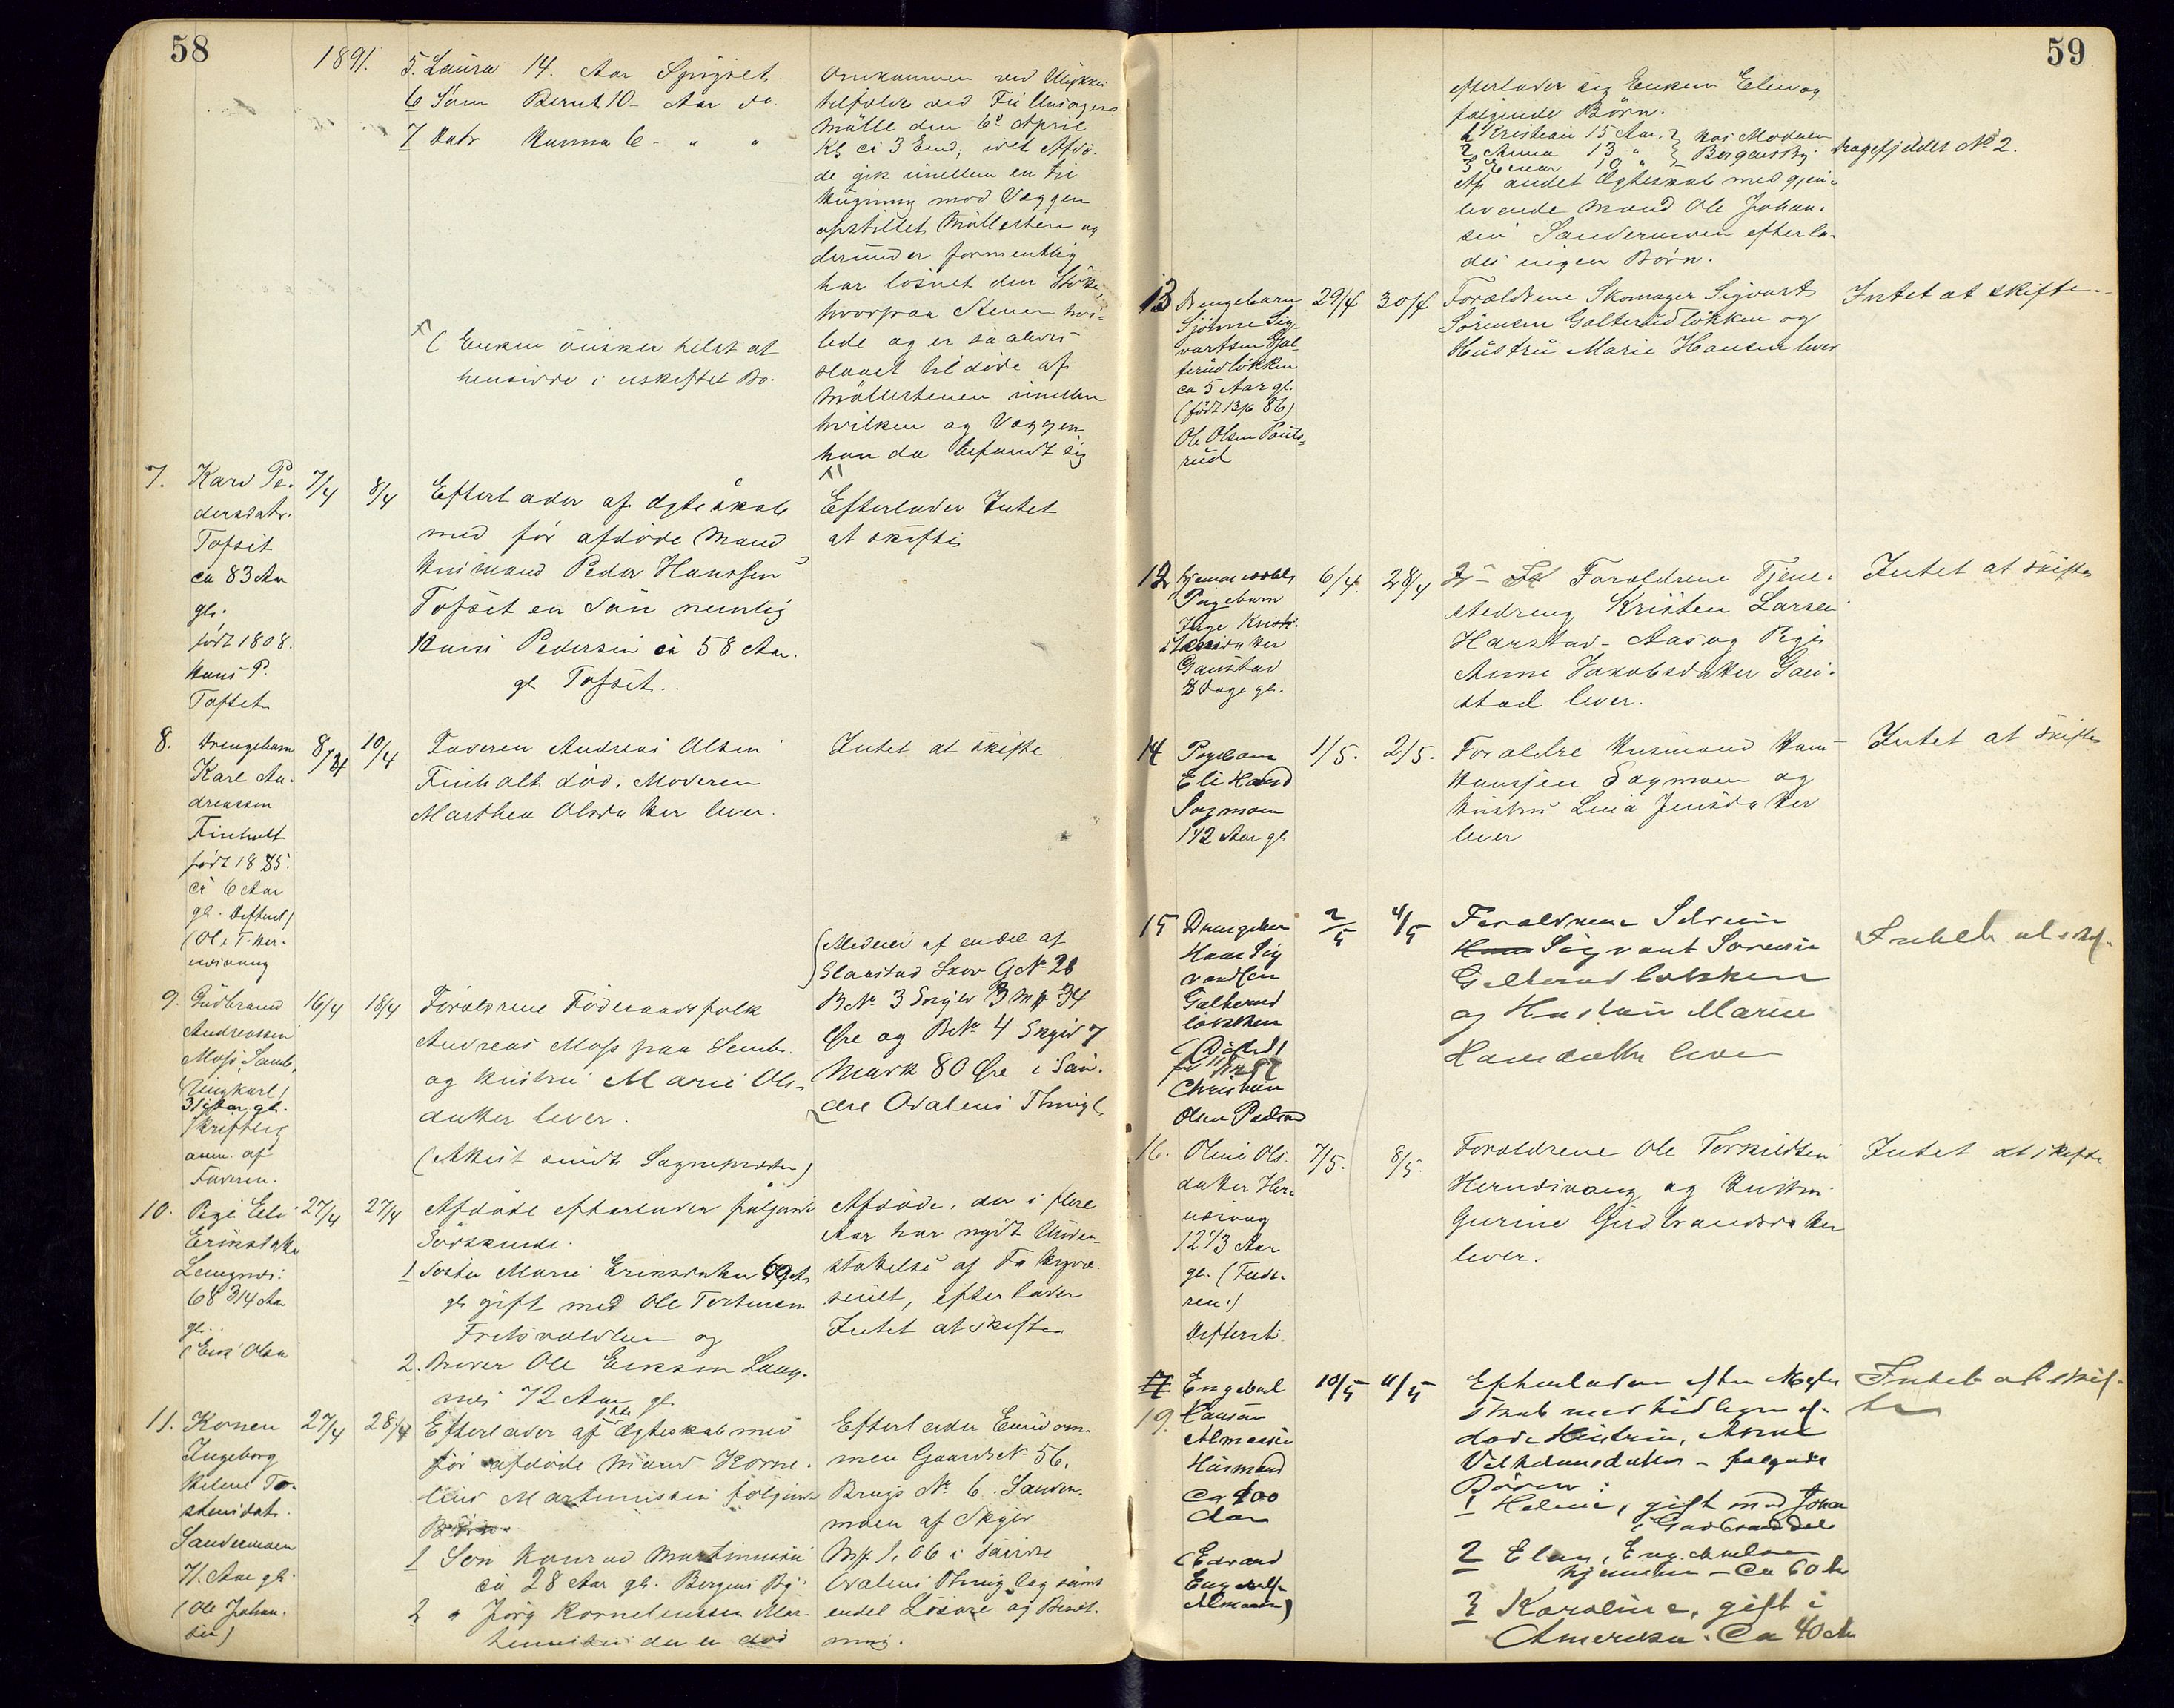 58
1891.
5. Laura 14. Aar Spigset
6 Søn Bernt 10 - Aar do.
7 Datr Hanna 6 - " "
Omkommen ved Ulykkes
tilfælde ved Fru
Mølle den 6te April
Kl. ca 3 Emd; idet Afdø-
de gik imellem en til
Hugning mod Væggen
opstillet Møllesten og
derunder formentlig
har løsnet den Støtte,
hvorpaa Stenen hvi-
lede og er saaledes
slaaet tildøde af
Møllestenen imellem
hvilken og Væggen
han da befandt sig
x)
x ( Enken ønsker helst at
hensidde i uskiftet Bo.
7. Kari Pe-
dersdatr.
Tofset
ca 83 Aar
gl.
født 1808.
Hans P.
Tofset
7/4 8/4
Efterlader af Ægteskab
med før afdøde Mand
Husmand Peder Hanssen
Tofset en Søn nemlig
Hans Pedersen ca 58 Aar.
gl Tofset..
Efterlader Intet
at skifte
8. Drengebarn
Karl An-
dreassen
Finholt
født 1885.
ca 6 Aar
gl. Difterit
(Ole T. Her-
nesvang
8/4 10/4
Faderen Andreas Olsen
Finholt død. Moderen
Marthea Olsdatter lever.
Intet at skifte.
9. Gudbrand
Andreassen
Moss Sand.
Ungkarl
31 Aar gl.
Skriftlig
anm. af
Faderen.
16/4 18/4
Forældrene Føderaadsfolk
Andreas Moss paa
og Hustru Marie Ols-
datter lever.
(Attest sendt Sognepræsten)
(Medeier af endel af
Slaastad Skov GNo 28
BNo 3 Skyld 3 Mk 34
Øre og BNo 4 Skyld 7
Mark 80 Øre i Søn-
dre Odalens Thingl.
10. Pige Eli
Eriksdatr
Langnes.
68 3/4 Aar
gl.
(Erik Olsen
27/4 27/4
Afdøde efterlader følgende
Sødskende.
1 Søster Marie Eriksdatter 69 Aar
gl gift med Ole Torstensen
og
2. Broder Ole Eriksen Lang-
nes 72 Aar gl
Afdøde, der i flere
Aar har nydt Under-
støttelse af Fattigvæ-
senet, efterlader
Intet at skifte
11. Konen
Ingeborg
Helene To-
stensdat.
Sandermoen
71. Aar gl.
(Ole Johan-
sen)
27/4 28/4
Efterlader af 1ste Ægteskab med
før afdøde Mand Korne-
lius Martinussen følgende
Børn
1 Søn Konrad Martinussen
ca 28 Aar gl. Bergens By.
2 " Jørg Korneliussen Mar-
der er død
Efterlader Eiendom-
men Gaards No 56.
Brugs No 6. Sander-
moen af Skyld
Mk. 1, 06 i Søndre
Odalens Thinglag samt
endel Løsøre og Besæt-
ning.
59
efterlader sig Enken Elen og
følgende Børn.
1 Kristian 15 Aar. } hos Moderen
2 Anna 13 " } Bergensby.
3 Einar 10 "
Dragefjeldet No 2.
Af andet Ægteskab med gjen-
levende Mand Ole Johan-
sen Sandermoen efterla-
des ingen Børn.
13 Drengebarn
Hjalmar Sig-
vartsen Gal-
terudløkken
ca 5 Aar gl.
(født 13/6 86)
Ole Olsen Pauls-
rud
29/4 30/4
Forældrene Skomager Sigvart
Sørensen Galterudløkken og
Hustru Marie Hansen lever
Intet at skifte.
12 Hjemmedøbt
Pigebarn
Inge Krist-
ensdatter
Gaustad
8 Dage gl.
6/4. 28/4
Forældrene Tjene-
stedreng Kristen Larsen
Harstad - Aas og Pige
Anne Jakobsdatter Gau-
stad lever.
Intet at skifte
14 Pigebarn
Eli Hansd
Sagmoen
1 1/2 Aar gl
1/5. 2/5.
Forældre Husmand Hans
Hanssen Sagmoen og
Hustru Lina Jensdatter
lever
Intet at skifte
15 Drengebarn
Hans Sig
vardsen
Galterud
løkken
(Difterit)
Christian
Olsen Paulsrud
2/5 4/5
Forældrene
Sigvart Sørensen
Galterudløkken
og Hustru Marie
Hansdatter lever
Intet at skif-
16. Oline Ols-
datter Her-
nesvang
12 1/3 Aar
gl. (Fade-
ren.)
Difterit.
7/5. 8/5.
Forældrene Ole Torkildsen
Hernesvang og Hustru
Gurine Gudbrandsdatter
lever.
Intet at skifte.
17
19. Engebret
Hansen
Almaasen
Husmand
Ca 100
Aar
(Edvard
Engebretsen
Almaasen)
10/5 11/5
Efterlader efter Ægte
skab med tidligere af-
døde Hustru, Anne
Vilhelmsdatter - følgende
Børn:
1 Helene, gift med Johan
i Gudbrandsdal
2 Elen, Eng.
hjemme - Ca 60 Aar
3 Karoline, gift i
Amerika. Ca 40 Aar
Intet at skif-
te